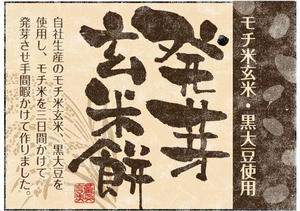 モチ米玄米・黒大豆使用
発芽
玄米餅
自社生産のモチ米玄米、黒大豆を
使用し、モチ米を三日間かけて
発芽させ手間暇かけて作りました。